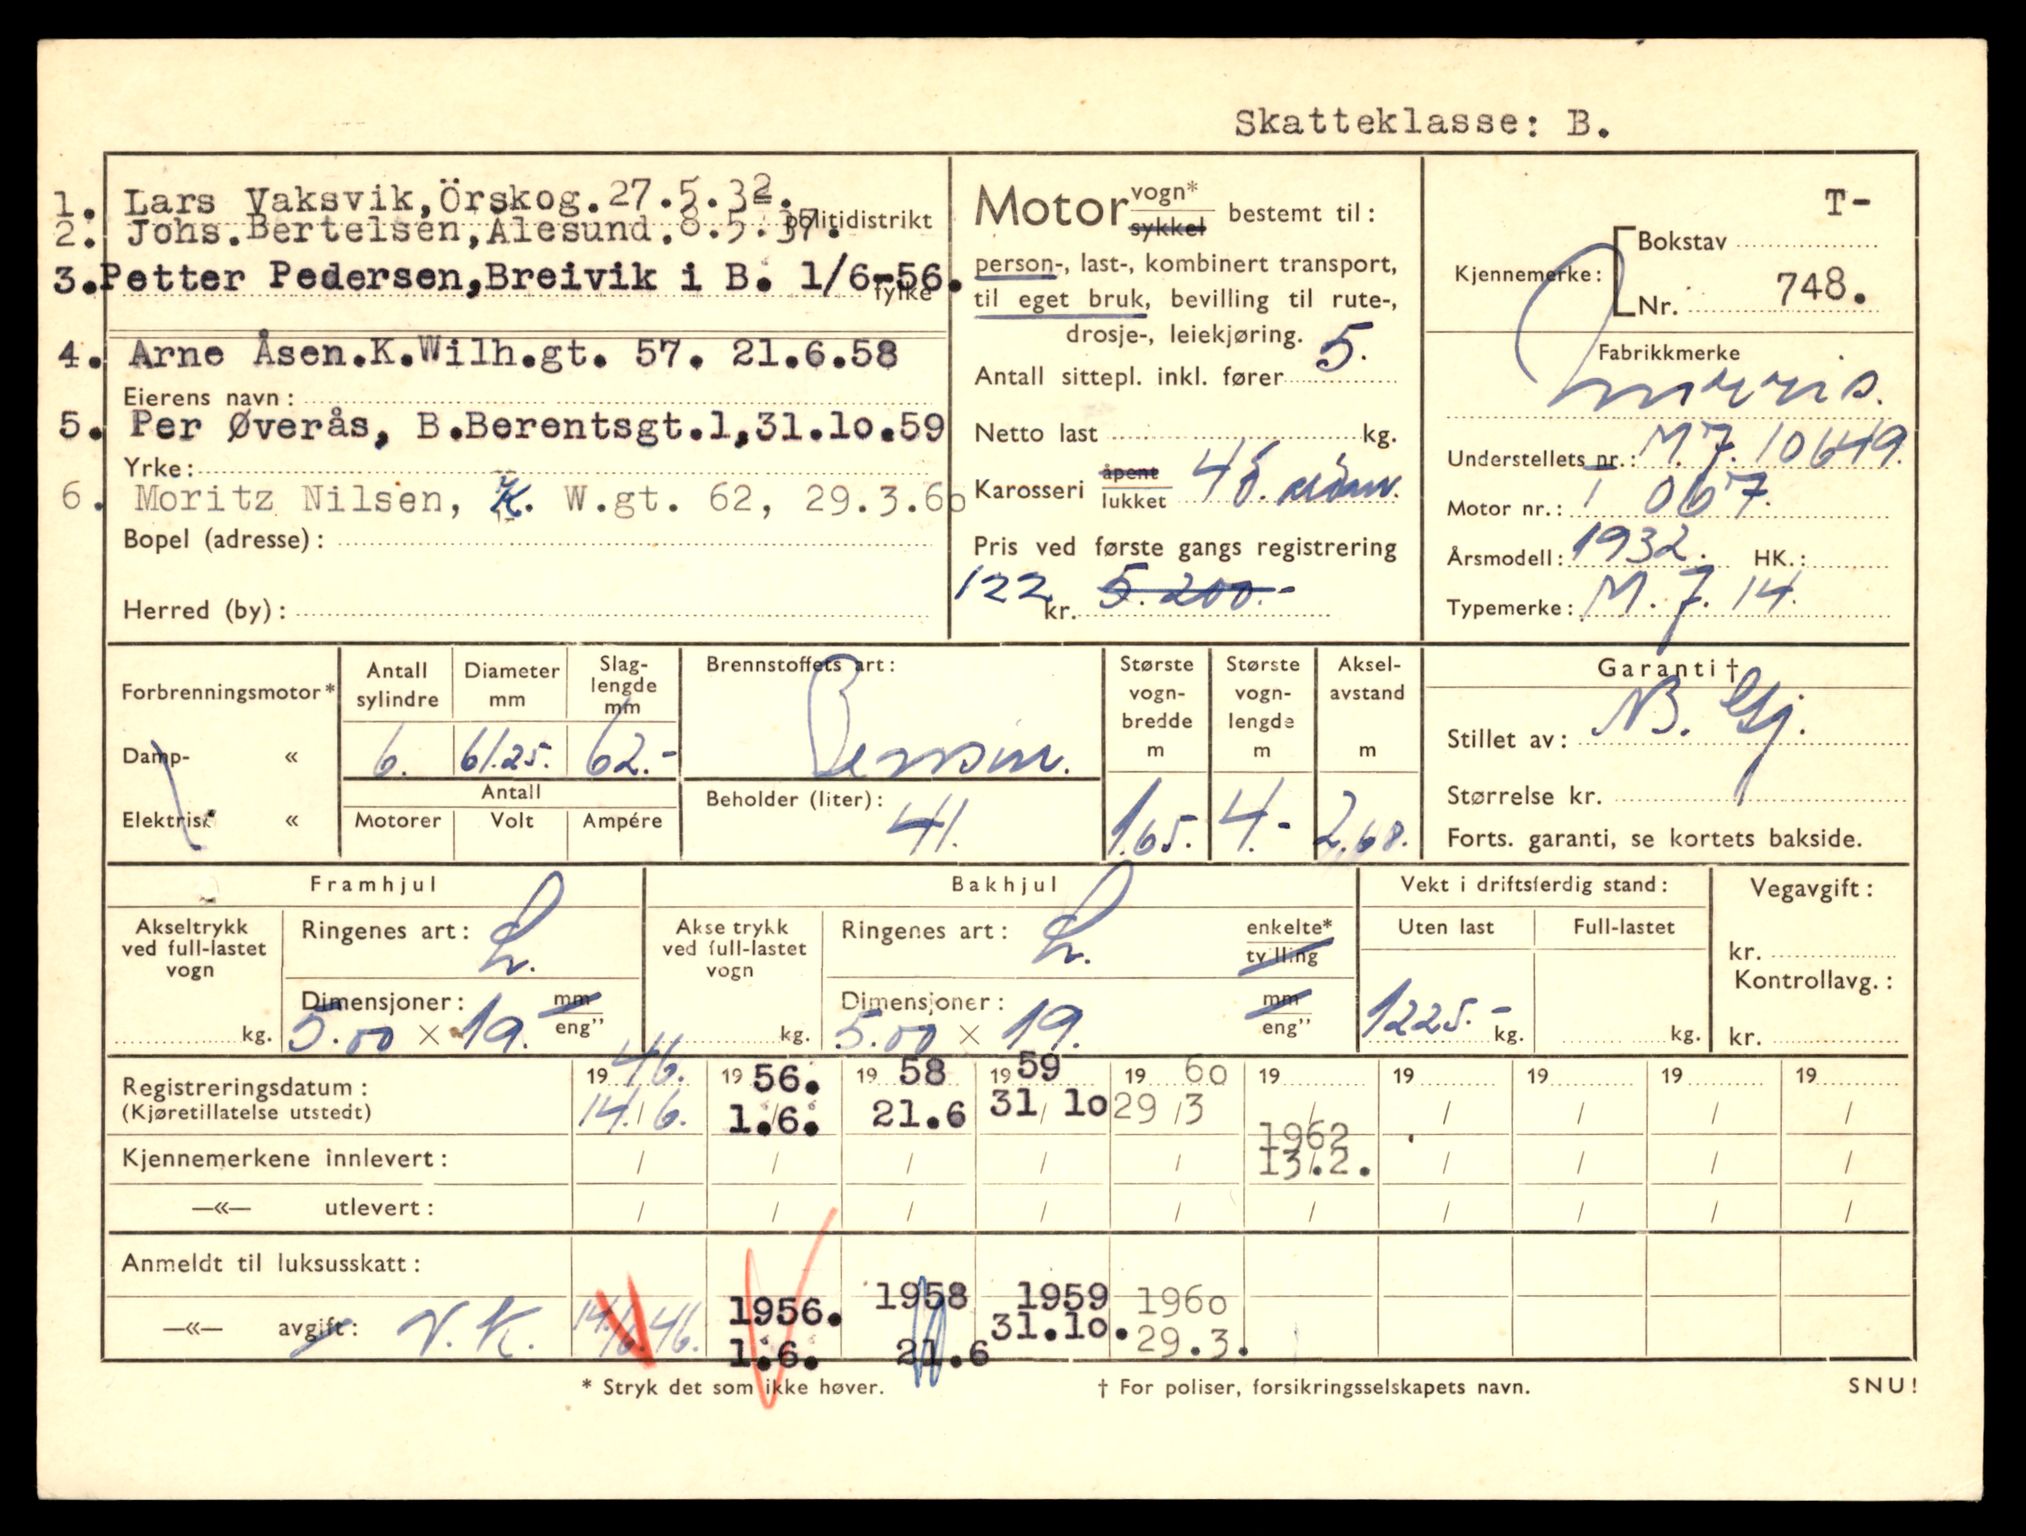 Skatteklasse: B.
1. Lars Vaksvik, Örskog. 27.5.32.
2. Johs. Bertelsen, Ålesund. 8.5.37.
politidistrikt
3. Petter Pedersen, Breivik i B. 1/6-56.
fylke
4. Arne Åsen. K. Wilh.gt. 57. 21.6.58
Eierens navn:
5. Per Øverås, B. Berentsgt.1, 31.10.59
Yrke:
6. Moritz Nilsen, K. W.gt. 62, 29.3.60
Bopel (adresse):
Herred (by):
Motor vogn* sykkel bestemt til:
person-, last-, kombinert transport,
til eget bruk, bevilling til rute-,
drosje-, leiekjøring.
Antall sittepl. inkl. fører 5.
Netto last kg.
Karosseri åpent lukket
Pris ved første gangs registrering
122 kr. 5.200.-
T-
Kjennemerke: Bokstav
Nr. 748.
Fabrikkmerke
Morris.
Understellets nr.: M.7. 10649.
Motor nr.: 067.
Årsmodell: 1932. HK.:
Typemerke: M.7.14.
Forbrenningsmotor*
Damp- «
Elektrisk «
Antall sylindre
6.
Diameter mm
61.25.
Slag-
lengde
mm
62.-
Antall
Motorer Volt Ampére
Brennstoffets art:
Bensin.
Beholder (liter):
41.
Største
vogn-
bredde
m
1.65.
Største
vogn-
lengde
m
4.-
Aksel-
avstand
m
2.68.
Garanti †
Stillet av: NB. Gj.
Størrelse kr.
Forts. garanti, se kortets bakside.
Framhjul
Akseltrykk
ved full-lastet
vogn
kg.
Ringenes art: L.
Dimensjoner: mm
5.00 × 19. eng"
Bakhjul
Akse trykk
ved full-lastet
vogn
kg.
Ringenes art: L. enkelte*
tvilling
Dimensjoner: mm
5.00 × 19. eng"
Vekt i driftsferdig stand:
Uten last Full-lastet
1225.- kg. kg.
Vegavgift:
kr.
Kontrollavg.:
kr.
Registreringsdatum: 1946. 1956. 1958 1959 1960 19 19 19 19 19
(Kjøretillatelse utstedt) 14./6. 1.6. 21.6 31/10 29/3 / / / / /
1962
Kjennemerkene innlevert: / / / / / 13.2. / / / /
—«— utlevert: / / / / / / / / / /
Anmeldt til luksusskatt:
—«— avgift: V.K. 14./6.46. 1956. 1958 1959 1960
1.6. 21.6 31.10. 29.3.
* Stryk det som ikke høver.
† For poliser, forsikringsselskapets navn.
SNU!